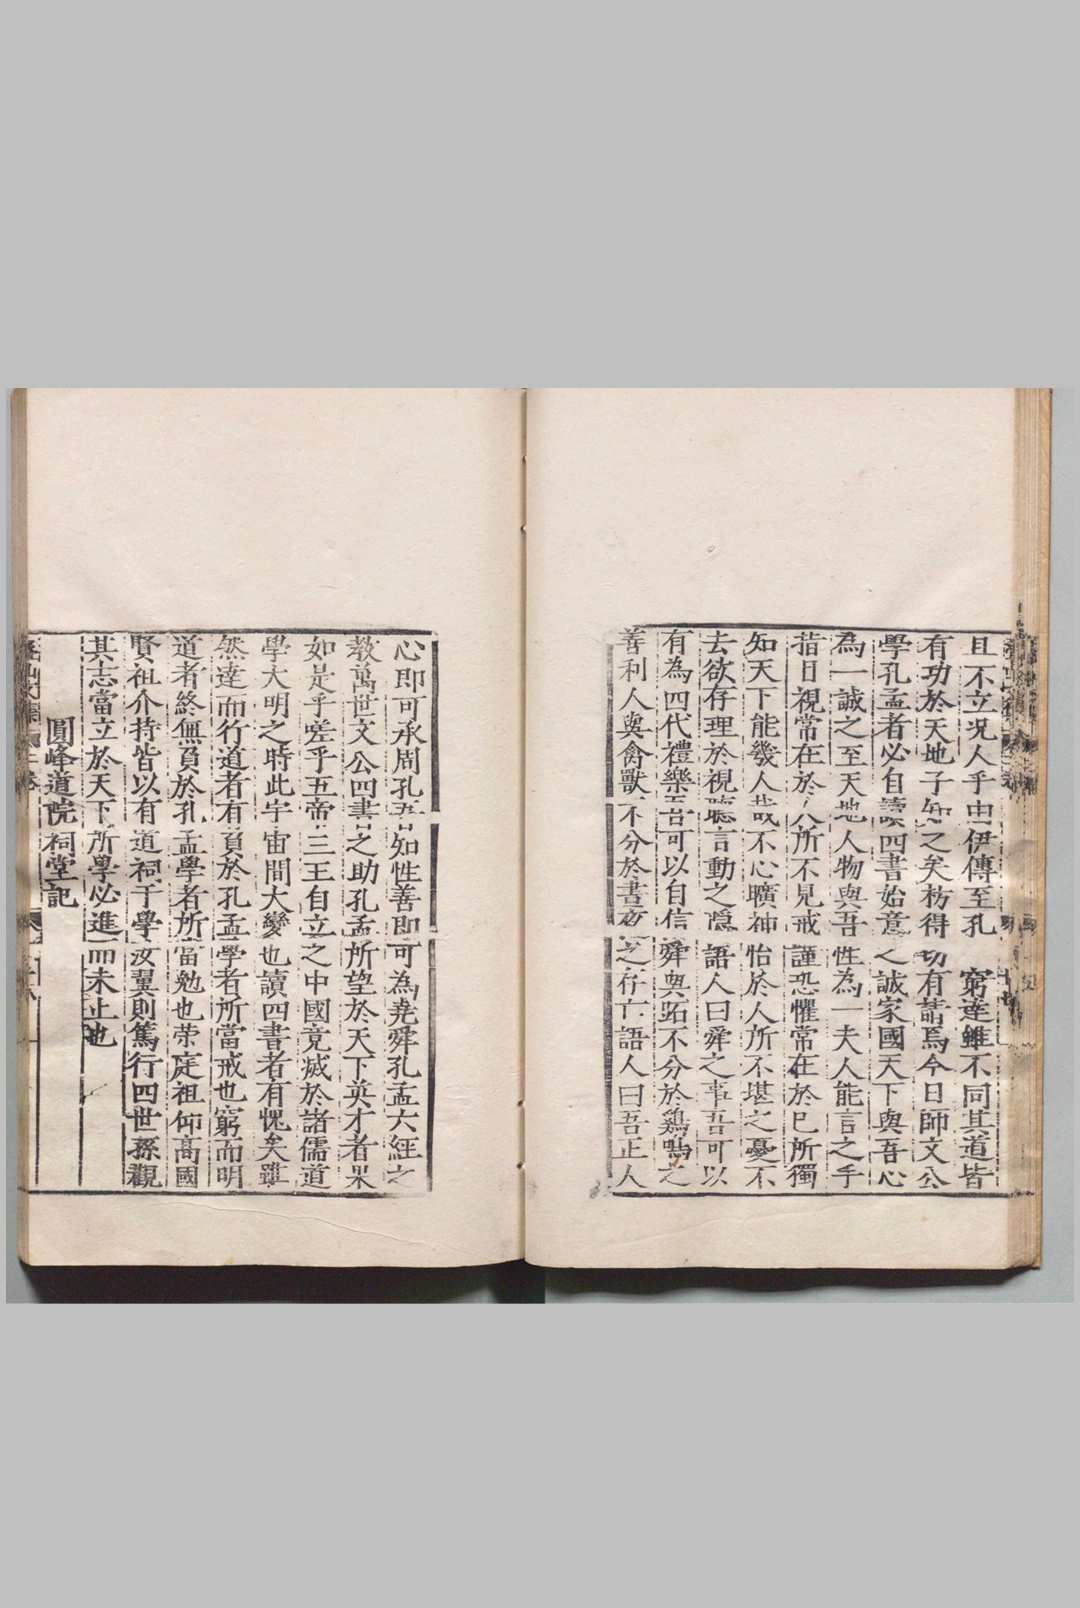 且不立况人乎由伊傳至孔 窮達雖不同其道皆
有功於天地子知之矣枋得 切有請焉今日師文公
學孔孟者必自讀四書始意之誠家國天下與吾心
為一誠之至天地人物與吾性為一夫人能言之乎
昔日視常在於人所不見戒謹恐懼常在於已所獨
知天下能幾人哉不心曠神怡於人所不堪之憂不
去欲存理於視聽言動之隱 語人曰舜之事吾可以
有為四代禮樂吾可以自信 舜與跖不分於鷄鳴之
善利人與禽獸不分於晝夜之存亡語人曰吾正人
心即可承周孔吾知性善即可為堯舜孔孟六經之
教萬世文公四書之助孔孟所望於天下英才者果
如是乎嗟乎五帝三王自立之中國竟滅於諸儒道
學大明之時此宇宙間大變也讀四書者有愧矣雖
然達而行道者有負於孔孟學者所當戒也窮而明
道者終無負於孔孟學者所當勉也荣庭祖仰高國
賢祖介持皆以有道祠于學汝翼則篤行四世孫觀
其志當立於天下所學必進而未止也
圓峰道院祠堂記